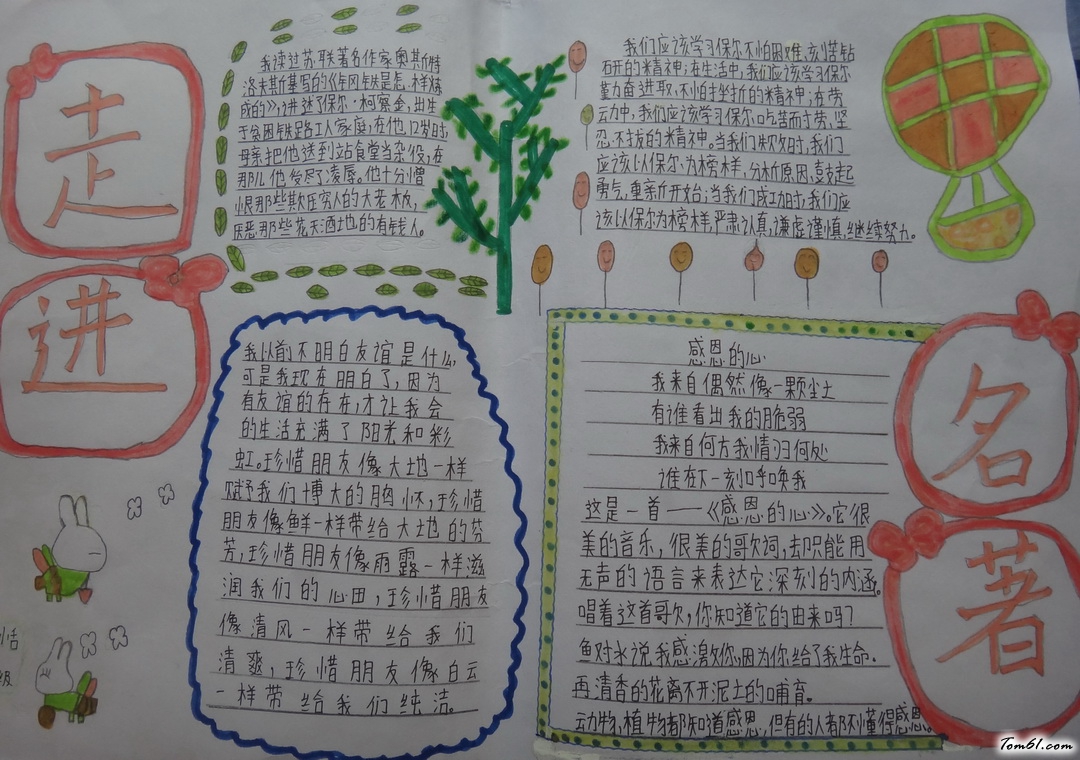 走
进
名
著
我读过苏联著名作家奥斯特
洛夫斯基写的《钢铁是怎样炼
成的》,讲述了保尔·柯察金,出生
于贫困铁路工人家庭,在他12岁时,
母亲把他送到站食堂当杂役,在
那儿他受尽了凌辱。他十分憎
恨那些欺压穷人的大老板,
厌恶那些花天酒地的有钱人。
我们应该学习保尔不怕困难,刻苦钻
研的精神;在生活中,我们应该学习保尔
勤奋进取,不怕挫折的精神;在劳
动中,我们应该学习保尔吃苦耐劳、坚
忍不拔的精神。当我们失败时,我们
应该以保尔为榜样,分析原因,鼓起
勇气,重新开始;当我们成功时,我们应
该以保尔为榜样,严肃认真,谦虚谨慎,继续努力。
我以前不明白友谊是什么,
可是我现在明白了,因为
有友谊的存在,才让我会
的生活充满了阳光和彩
虹。珍惜朋友像大地一样
赋予我们博大的胸怀,珍惜
朋友像鲜一样带给大地的芬
芳,珍惜朋友像雨露一样滋
润我们的心田,珍惜朋友
像清风一样带给我们
清爽,珍惜朋友像白云
一样带给我们纯洁。
感恩的心
我来自偶然像一颗尘土
有谁看出我的脆弱
我来自何方我情归何处
谁在下一刻呼唤我
这是一首——《感恩的心》。它很
美的音乐,很美的歌词,却只能用
无声的语言来表达它深刻的内涵。
唱着这首歌,你知道它的由来吗?
鱼对水说我感激你,因为你给了我生命.
再清香的花离不开泥土的哺育。
动物,植物都知道感恩,但有的人都不懂得感恩。
恬
级
Tom61.com